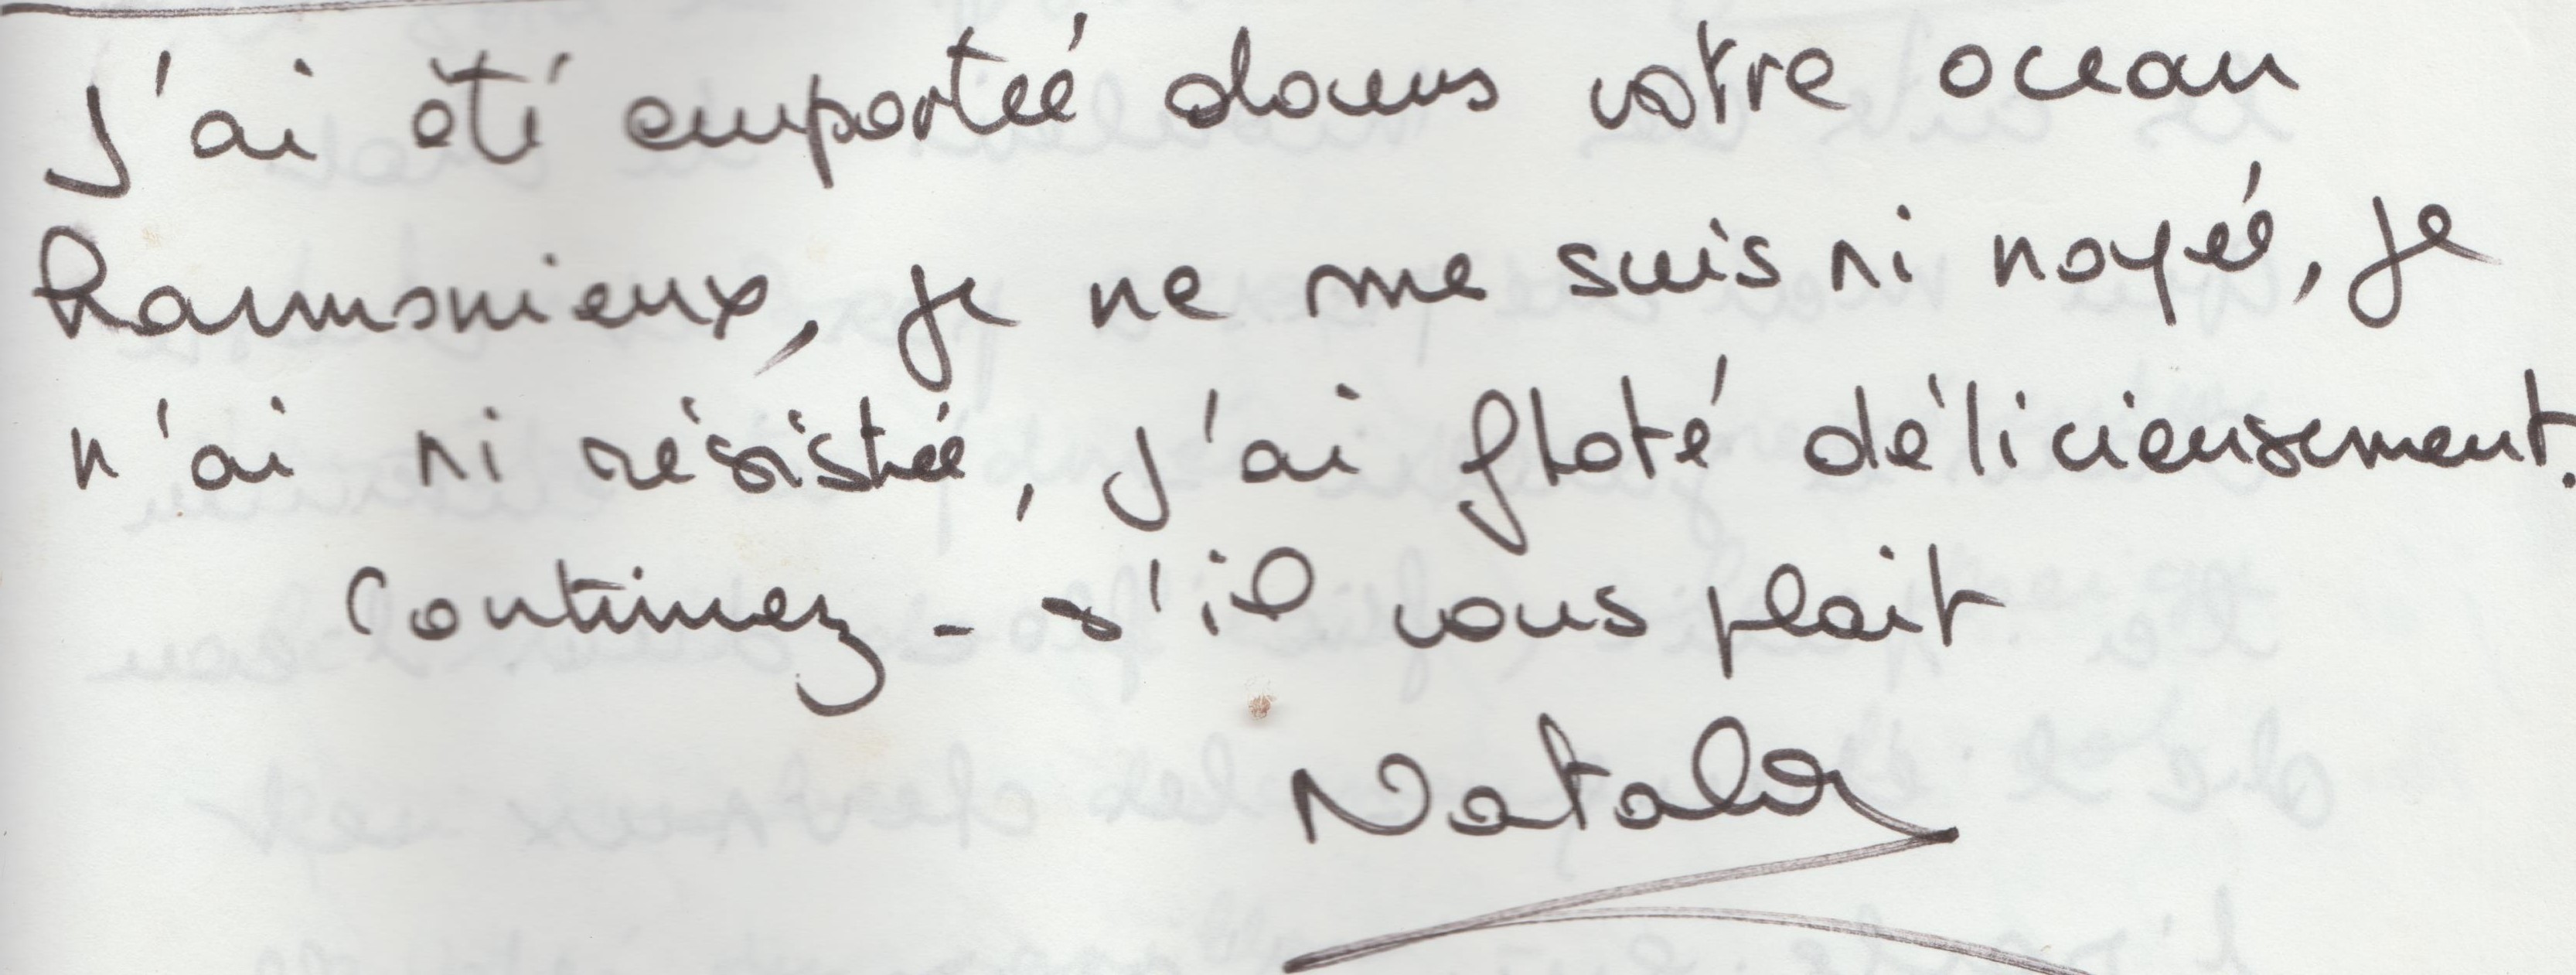 J'ai été emportée dans votre ocean
harmonieux, je ne me suis ni noyée, je
n'ai ni résistée, j'ai floté délicieusement.
Continuez - s'il vous plait
Natalia